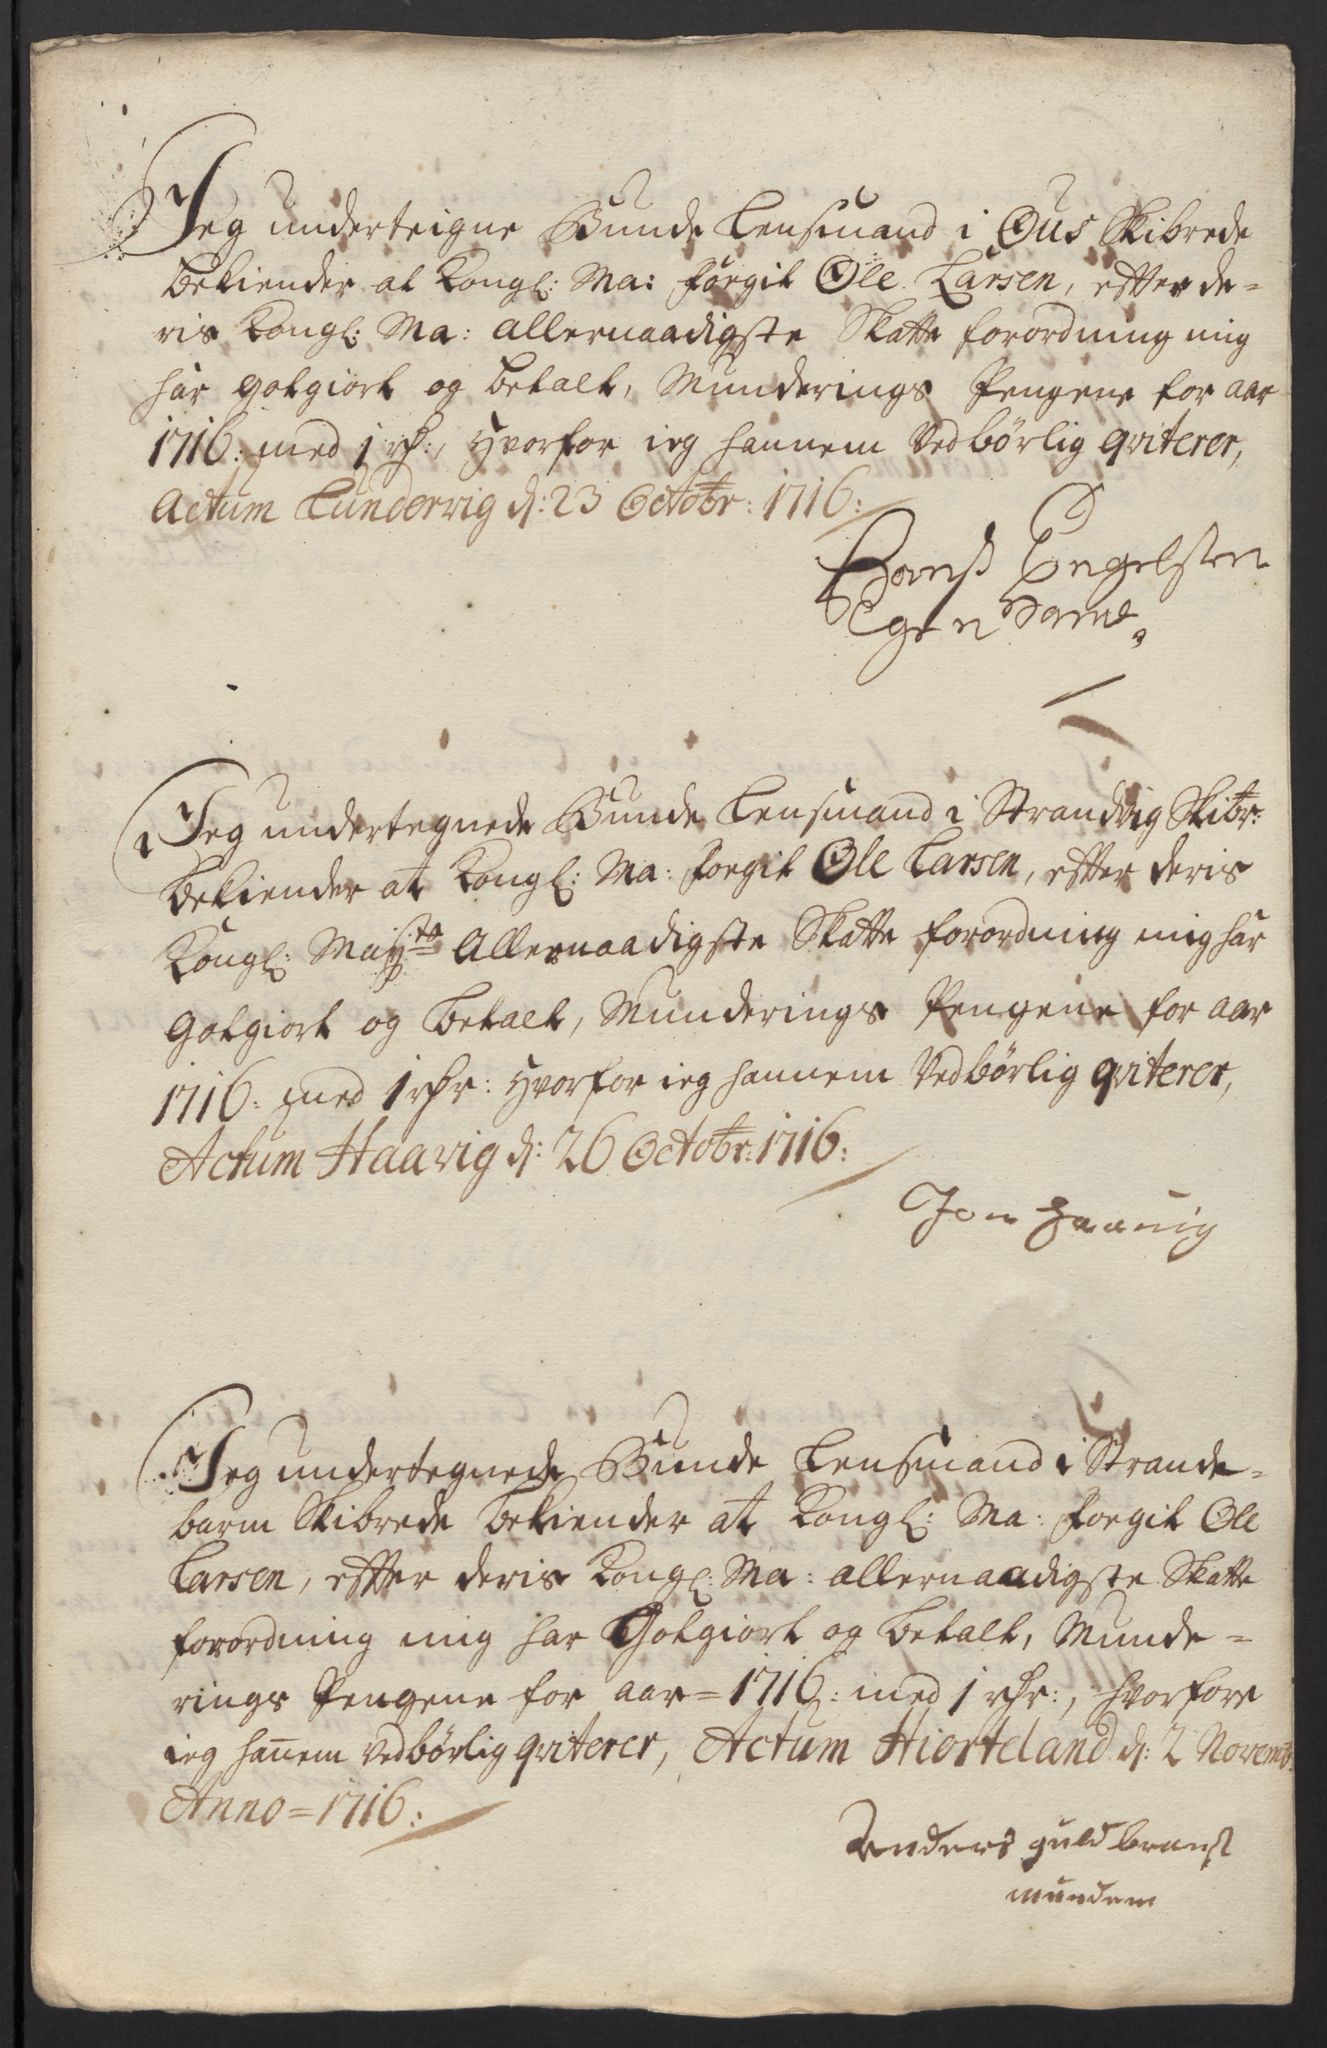 Jeg underteigne Bunde Lensmand i Ous Skibrede
bekiender at Kongl: Ma: forgit Ole Larsen, efter de=
ris Kongl: Ma: allernaadigste Skatte forordning mig
har gotgiort og betalt, Munderings Pengene for aar
1716: med 1 rdr:, hvorfor ieg hannem Vedbørlig qviterer,
Actum Lundervig d: 23 Octobr: 1716:
Hans Engelsen
Egen Hand
Jeg undertegnede Bunde Lensmand i Strandvig Skibr:
bekiender at Kongl: Ma: forgit Ole Larsen, efter deris
Kongl: Mayts Allernaadigste Skatte forordning mig har
gotgiort og betalt, Munderings Pengene for aar
1716: med 1 rdr: hvorfor ieg hannem Vedbørlig qviterer,
Actum Haavig d: 26 Octobr: 1716:
Jon Haavig
Jeg undertegnede Bunde Lensmand i Strande=
barm Skibrede bekiender at Kongl: Ma: forgit Ole
Larsen, efter deris Kongl: Ma: allernaadigste Skatte
forordning mig har Gotgiort og betalt, Munde=
rings Pengene for aar = 1716: med 1 rdr:, hvorfore
ieg hañem vedbørlig qviterer, Actum Hiorteland d: 2 Novemb:
Anno = 1716:
Anders guldbrans